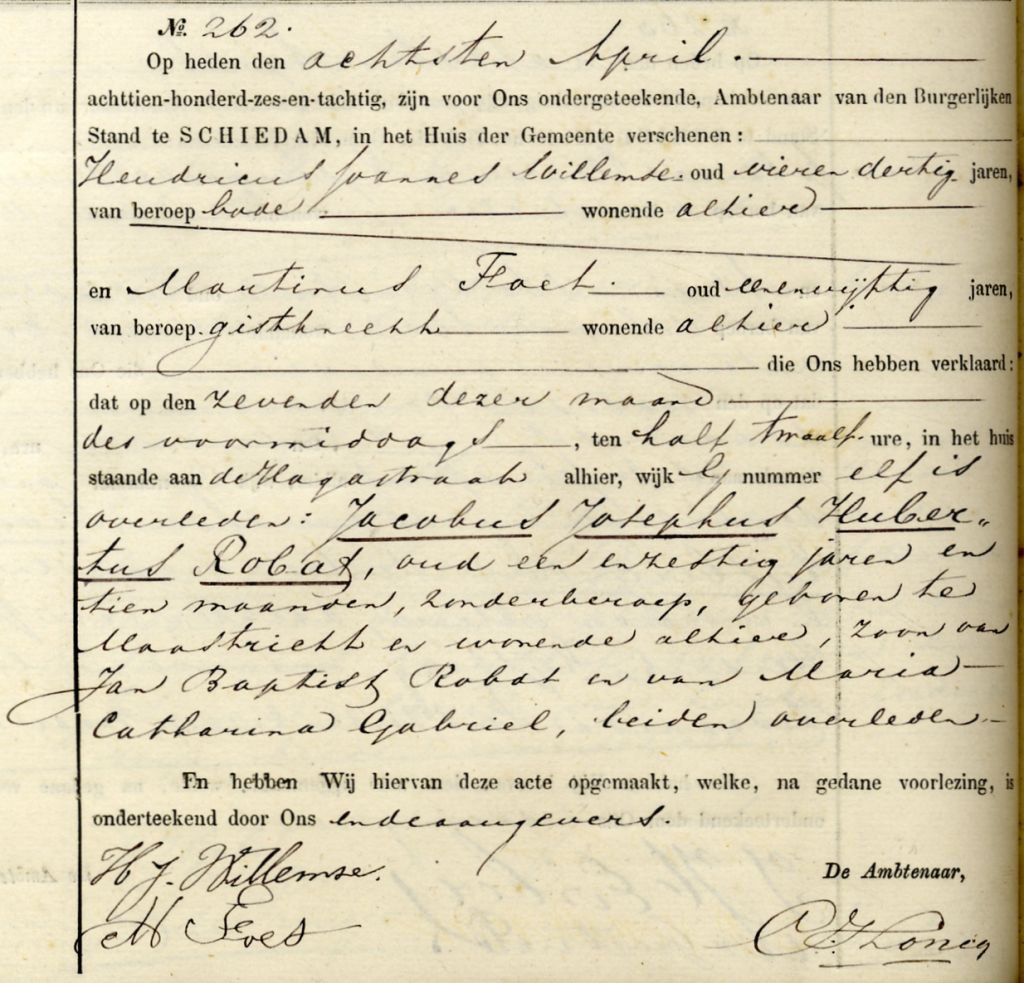 №. 262.
Op heden den achtsten April.
achttien-honderd-zes-en-tachtig, zijn voor Ons ondergeteekende, Ambtenaar van den Burgerlijken
Stand te SCHIEDAM, in het Huis der Gemeente verschenen:
Hendricus Joannes Willemse. oud vieren dertig jaren,
van beroep bode wonende alhier
en Martinus Floet. oud eenenvijftig jaren,
van beroep gistknecht wonende alhier
die Ons hebben verklaard:
dat op den zevenden dezer maand
des voormiddags, ten half twaalf ure, in het huis
staande aan de Hagastraat alhier, wijk G nummer elf is
overleden: Jacobus Josephus Huber„
tus Robat, oud een enzestig jaren en
tien maanden, zonder beroep, geboren te
Maastricht en wonende alhier, zoon van
Jan Baptist Robat en van Maria
Catharina Gabriel, beiden overleden
En hebben Wij hiervan deze acte opgemaakt, welke, na gedane voorlezing, is
onderteekend door Ons en de aangevers.
H J. Willemse.
De Ambtenaar,
M